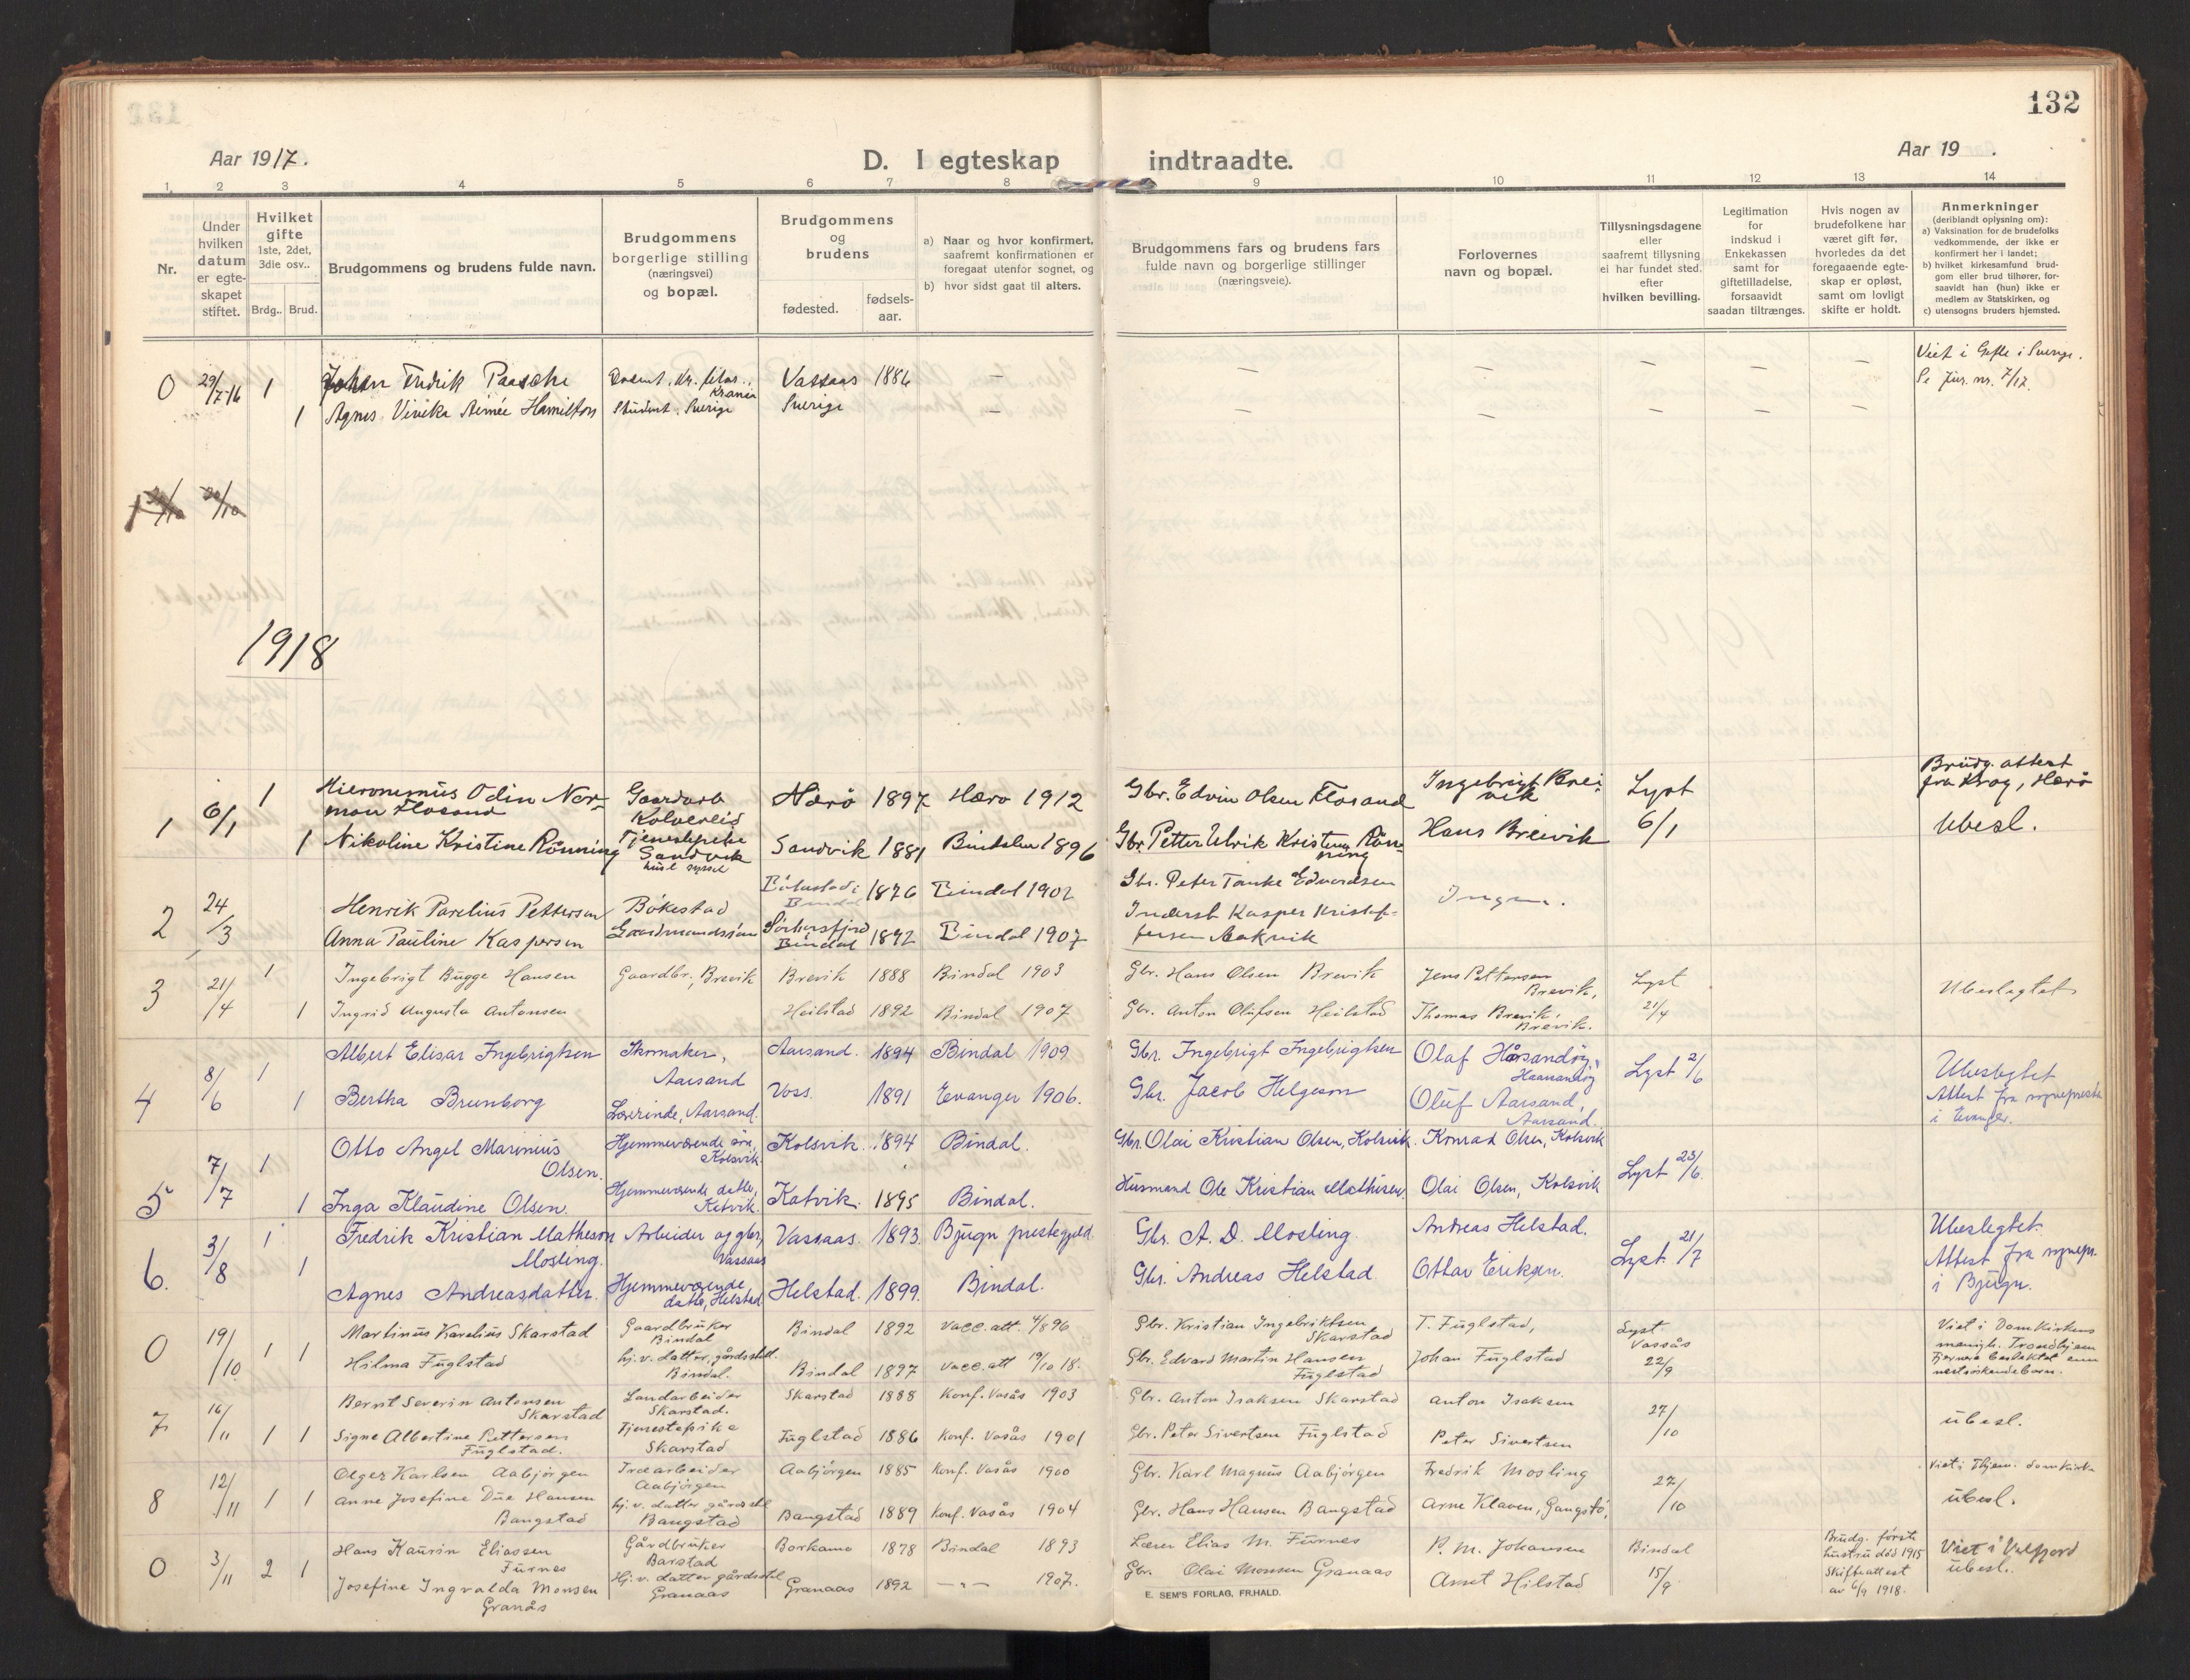 132
Aar 1917.
D. I egteskap indtraadte.
Aar 19 .
1. 2 3 4 5 6 7 8 9 10 11 12 13 14
Nr.
Under hvilken datum er egteskapet stiftet.
Hvilket gifte 1ste, 2det, 3die osv..
Brdg.. Brud.
Brudgommens og brudens fulde navn.
Brudgommens borgerlige stilling (næringsvei) og bopæl.
Brudgommens og brudens
fødested. fødsels-aar.
a) Naar og hvor konfirmert, saafremt konfirmationen er foregaat utenfor sognet, og
b) hvor sidst gaat til alters.
Brudgommens fars og brudens fars fulde navn og borgerlige stillinger (næringsveie).
Forlovernes navn og bopæl.
Tillysningsdagene eller saafremt tillysning ei har fundet sted. efter hvilken bevilling.
Legitimation for indskud i Enkekassen samt for giftetilladelse, forsaavidt saadan tiltrænges.
Hvis nogen av brudefolkene har været gift før, hvorledes da det foregaaende egteskap er opløst, samt om lovligt skifte er holdt.
Anmerkninger (deriblandt oplysning om):
a) Vaksination for de brudefolks vedkommende, der ikke er konfirmert her i landet;
b) hvilket kirkesamfund brudgom eller brud tilhører, forsaavidt han (hun) ikke er medlem av Statskirken, og
c) utensogns bruders hjemsted.
0 29/7-16 1 Johan Fredrik Paasche Dosent, dr. filos., Krania Vassaas 1886 – – – – – Viet i Gefle i Sverige. Se Jur. nr. 7/17.
1 Agnes Viveka Aimée Hamilton Student. Sverige Sverige – – – – – –
1918
1 6/1 1 Hieronymus Odin Norman Flosand Gaardarb Kolvereid Nærö 1897 Nærö 1912 Gbr. Edvin Olsen Flosand Ingebrigt Breivik Lyst 6/1 Brudg. attest fra Krog, Nærö
1 Nikoline Kristine Rönning Tjenestepike Sandvik Sandvik 1881 Bindalen 1896 Gbr. Petter Ulrik Kristensen Rönning Hans Breivik Ubesl.
2 24/3 Henrik Parelius Pettersen Bökestad Bindal 1876 Bindal 1902 Gbr. Peter Tanke Edvardsen Ingen.
Anna Pauline Kaspersen Sörhorsfjord Bindal 1892 Bindal 1907 Inderst Kasper Kristoffersen Aakvik
3 21/4 1 Ingebrigt Bugge Hansen Gaardbr., Brevik Brevik 1888 Bindal 1903 Gbr. Hans Olsen Brevik Jens Pettersen Brevik, Lyst 21/4 Ubeslegtet
1 Ingrid Augusta Antonsen Heilstad 1892 Bindal 1907 Gbr. Anton Olufsen Heilstad Thomas Brevik, Brevik.
4 8/6 1 Albert Elisar Ingebrigtsen Skomaker, Aarsand Aarsand. 1894 Bindal 1909 Gbr. Ingebrigt Ingebrigtsen Olaf Hårsandöy, Lyst 2/6 Ubeslegtet
1 Bertha Brunborg Lærerinde, Aarsand. Voss. 1891 Evanger 1906. Gbr. Jacob Helgeson Oluf Aarsand, Aarsand. Attest fra sogneprest i Evanger.
5 7/7 1 Otto Angel Marinius Olsen. Hjemmeværende sön, Kolsvik. Kolsvik. 1894 Bindal. Gbr. Olai Kristian Olsen, Kolsvik. Konrad Olsen, Kolsvik Lyst 23/6.
1 Inga Klaudine Olsen. Hjemmeværende datter, Katvik. Katvik. 1895 Bindal. Husmand Ole Kristian Mathisen. Olai Olsen, Kolsvik
6. 3/8 1 Fredrik Kristian Matheson Mosling. Arbeider og gbr., Vassaas Vassaas. 1893. Bjugn prestegjeld. Gbr. A. D. Mosling. Andreas Helstad. Lyst. 21/7 Ubeslegtet.
1 Agnes Andreasdatter. Hjemmeværende datter, Helstad Helstad. 1899. Bindal. Gbr. Andreas Helstad Ottar Eriksen. Attest fra sognepr. i Bjugn.
0 19/10 1 Martinus Karelius Skarstad Gaardbruker Bindal Bindal 1892 Vacc. att. 4/8 96 Gbr. Kristian Ingebriktsen Skarstad T. Fuglstad, Lyst. Vassås 22/9 Viet i Domkirkens menigh. Trondhjem Fjernere beslektet enn nestsöskendebarn.
1 Hilma Fuglstad hj. v. datter, gårdsstell. Bindal. Bindal 1897 Vacc. att 19/10 18. Gbr. Edvard Martin Hansen Fuglstad Johan Fuglstad
7 16/11 1 Bernt Severin Antonsen Skarstad Landarbeider Skarstad. Skarstad 1888 Konf. Vasås 1903 Gbr. Anton Isaksen Skarstad Anton Isaksen 27/10 ubesl.
1 Signe Albertine Pettersen Fuglstad. Tjenestepike Skarstad Fuglstad 1886 Konf. Vasås 1901 Gbr. Peter Sivertsen Fuglstad Peter Sivertsen
8 12/11 1 Olger Karlsen Aabjörgen Træarbeider Aabjörgen Aabjörgen 1885 Konf. Vasås 1900 Gbr. Karl Magnus Aabjörgen Fredrik Mosling 27/10 Viet i Thjem. domkirke
1 Anne Josefine Due Hansen Bangstad hj. v. datter gårdsstell Bangstad Bangstad 1889 Konf. Vasås 1904 Gbr. Hans Hansen Bangstad Arne Klaven, Gangstö, ubesl.
0 3/11 2 Hans Kaurin Eliassen Furnes Gårdbruker Barstad Borkamo 1878 Bindal 1893 Lærer Elias M. Furnes P. M. Johansen Bindal 15/9 Brudg. förste hustru död 1915 Skifteattest av 6/9 1918. Viet i Velfjord ubesl.
1 Josefine Ingvalda Monsen Granås Hj. v. datter gårdsstell Granaas Granaas 1892 –"– 1907. Gbr. Olai Monsen Granaas Arnet Hilstad
E. SEM'S FORLAG, FR.HALD.